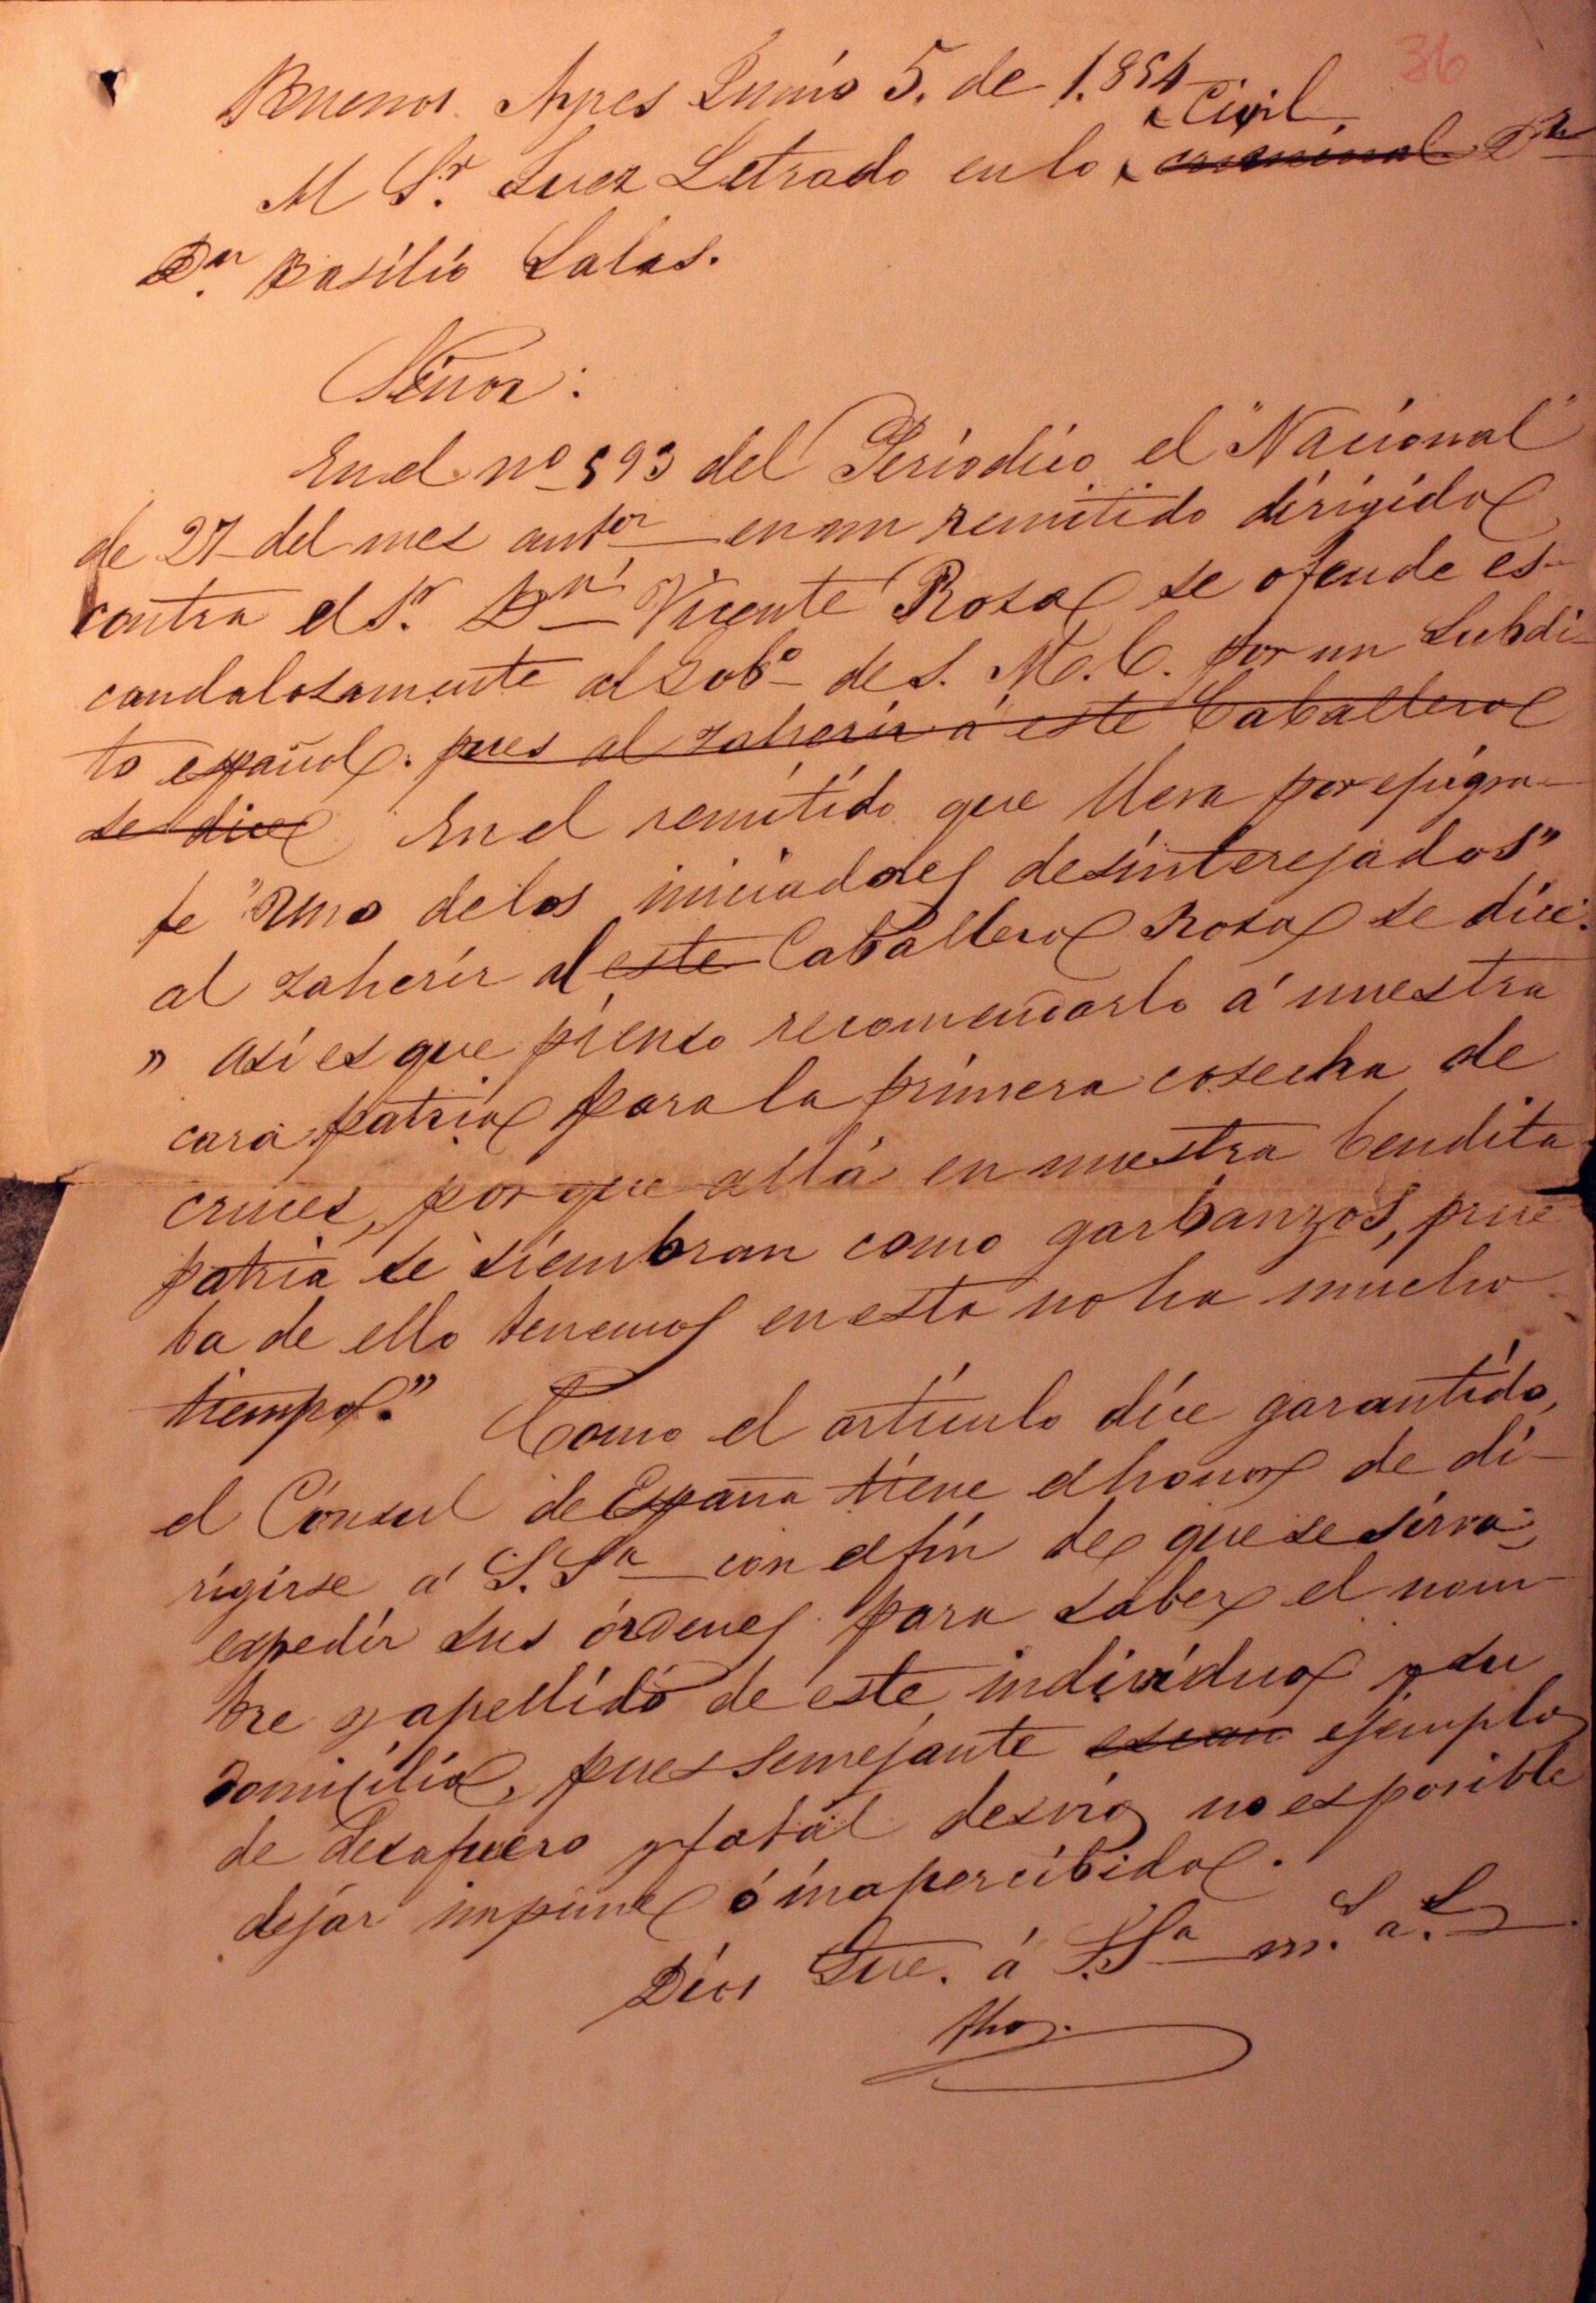 36
Buenos Ayres Junio 5. de 1.854
Civil
Al Sr. Juez Letrado en lo criminal Dr
Dn Basilio Salas.
Señor:
En el nº 593 del Periodico el "Nacional"
de 27 del mes antor en un remitido dirigido
contra el Sr. Dn Vicente Rosa se ofende es-
candalosamente al Gobº de S. M. C. por un subdi-
to español. pues al zaherir á este Caballero
se dice En el remitido que lleva por epigra-
fe "Uno de los iniciadores desinteresados"
al zaherir al este Caballero Rosa se dice:
" asi es que pienso recomendarlo á nuestra
cara patria para la primera cosecha de
cruces, por que allá en nuestra bendita
patria se siembran como garbanzos, prue
ba de ello tenemos en esta no ha mucho
tiempo." Como el artículo dice garantido,
el Cónsul de España tiene el honor de di-
rigirse á S. Sa con el fin de que se sirva
expedir sus órdenes para saber el nom-
bre y apellido de este individuo y su
domicilio, pues semejante ejemplo
de desafuero y fatal desvio no es posible
dejar impune ó inapercibido.
Dios Gue. á S. Sa m.s a.s
fho.